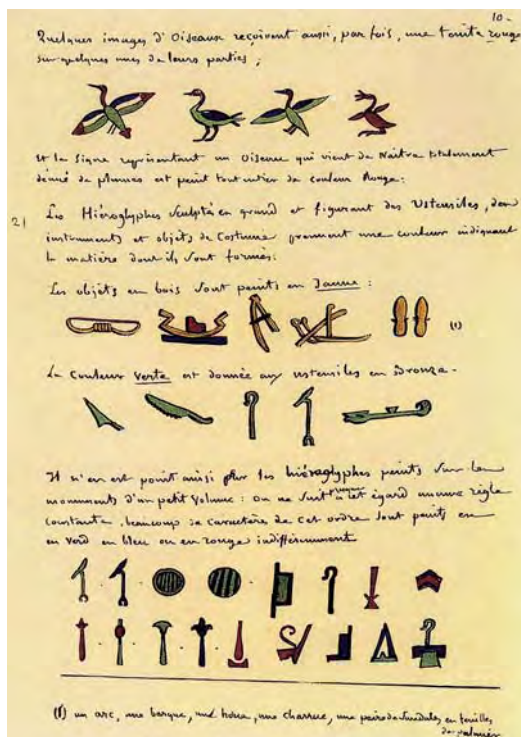 10.
Quelques images d'Oiseaux reçoivent aussi, par fois, une teinte rouge
sur quelques unes de leurs parties;
Et le signe représentant un Oiseau qui vient de Naître totalement
dénué de plumes est peint tout entier de couleur Rouge:
2) Les Hiéroglyphes Sculptés en grand et figurant des Ustensiles, des
instruments et objets de Costume prennent une couleur indiquant
la matière dont ils sont formés:
Les objets en bois sont peints en Jaune:
(1)
La Couleur verte est donnée aux ustensiles en Bronze.
Il n'en est point ainsi pour les hiéroglyphes peints sur les
monuments d'un petit Volume: on ne suit presque à cet égard aucune règle
constante, beaucoup de caractères de cet ordre sont peints en
en verd en bleu ou en rouge indifféremment
(1) un arc, une barque, une houe, une charrue, une paire de Sandales en feuilles
de palmier